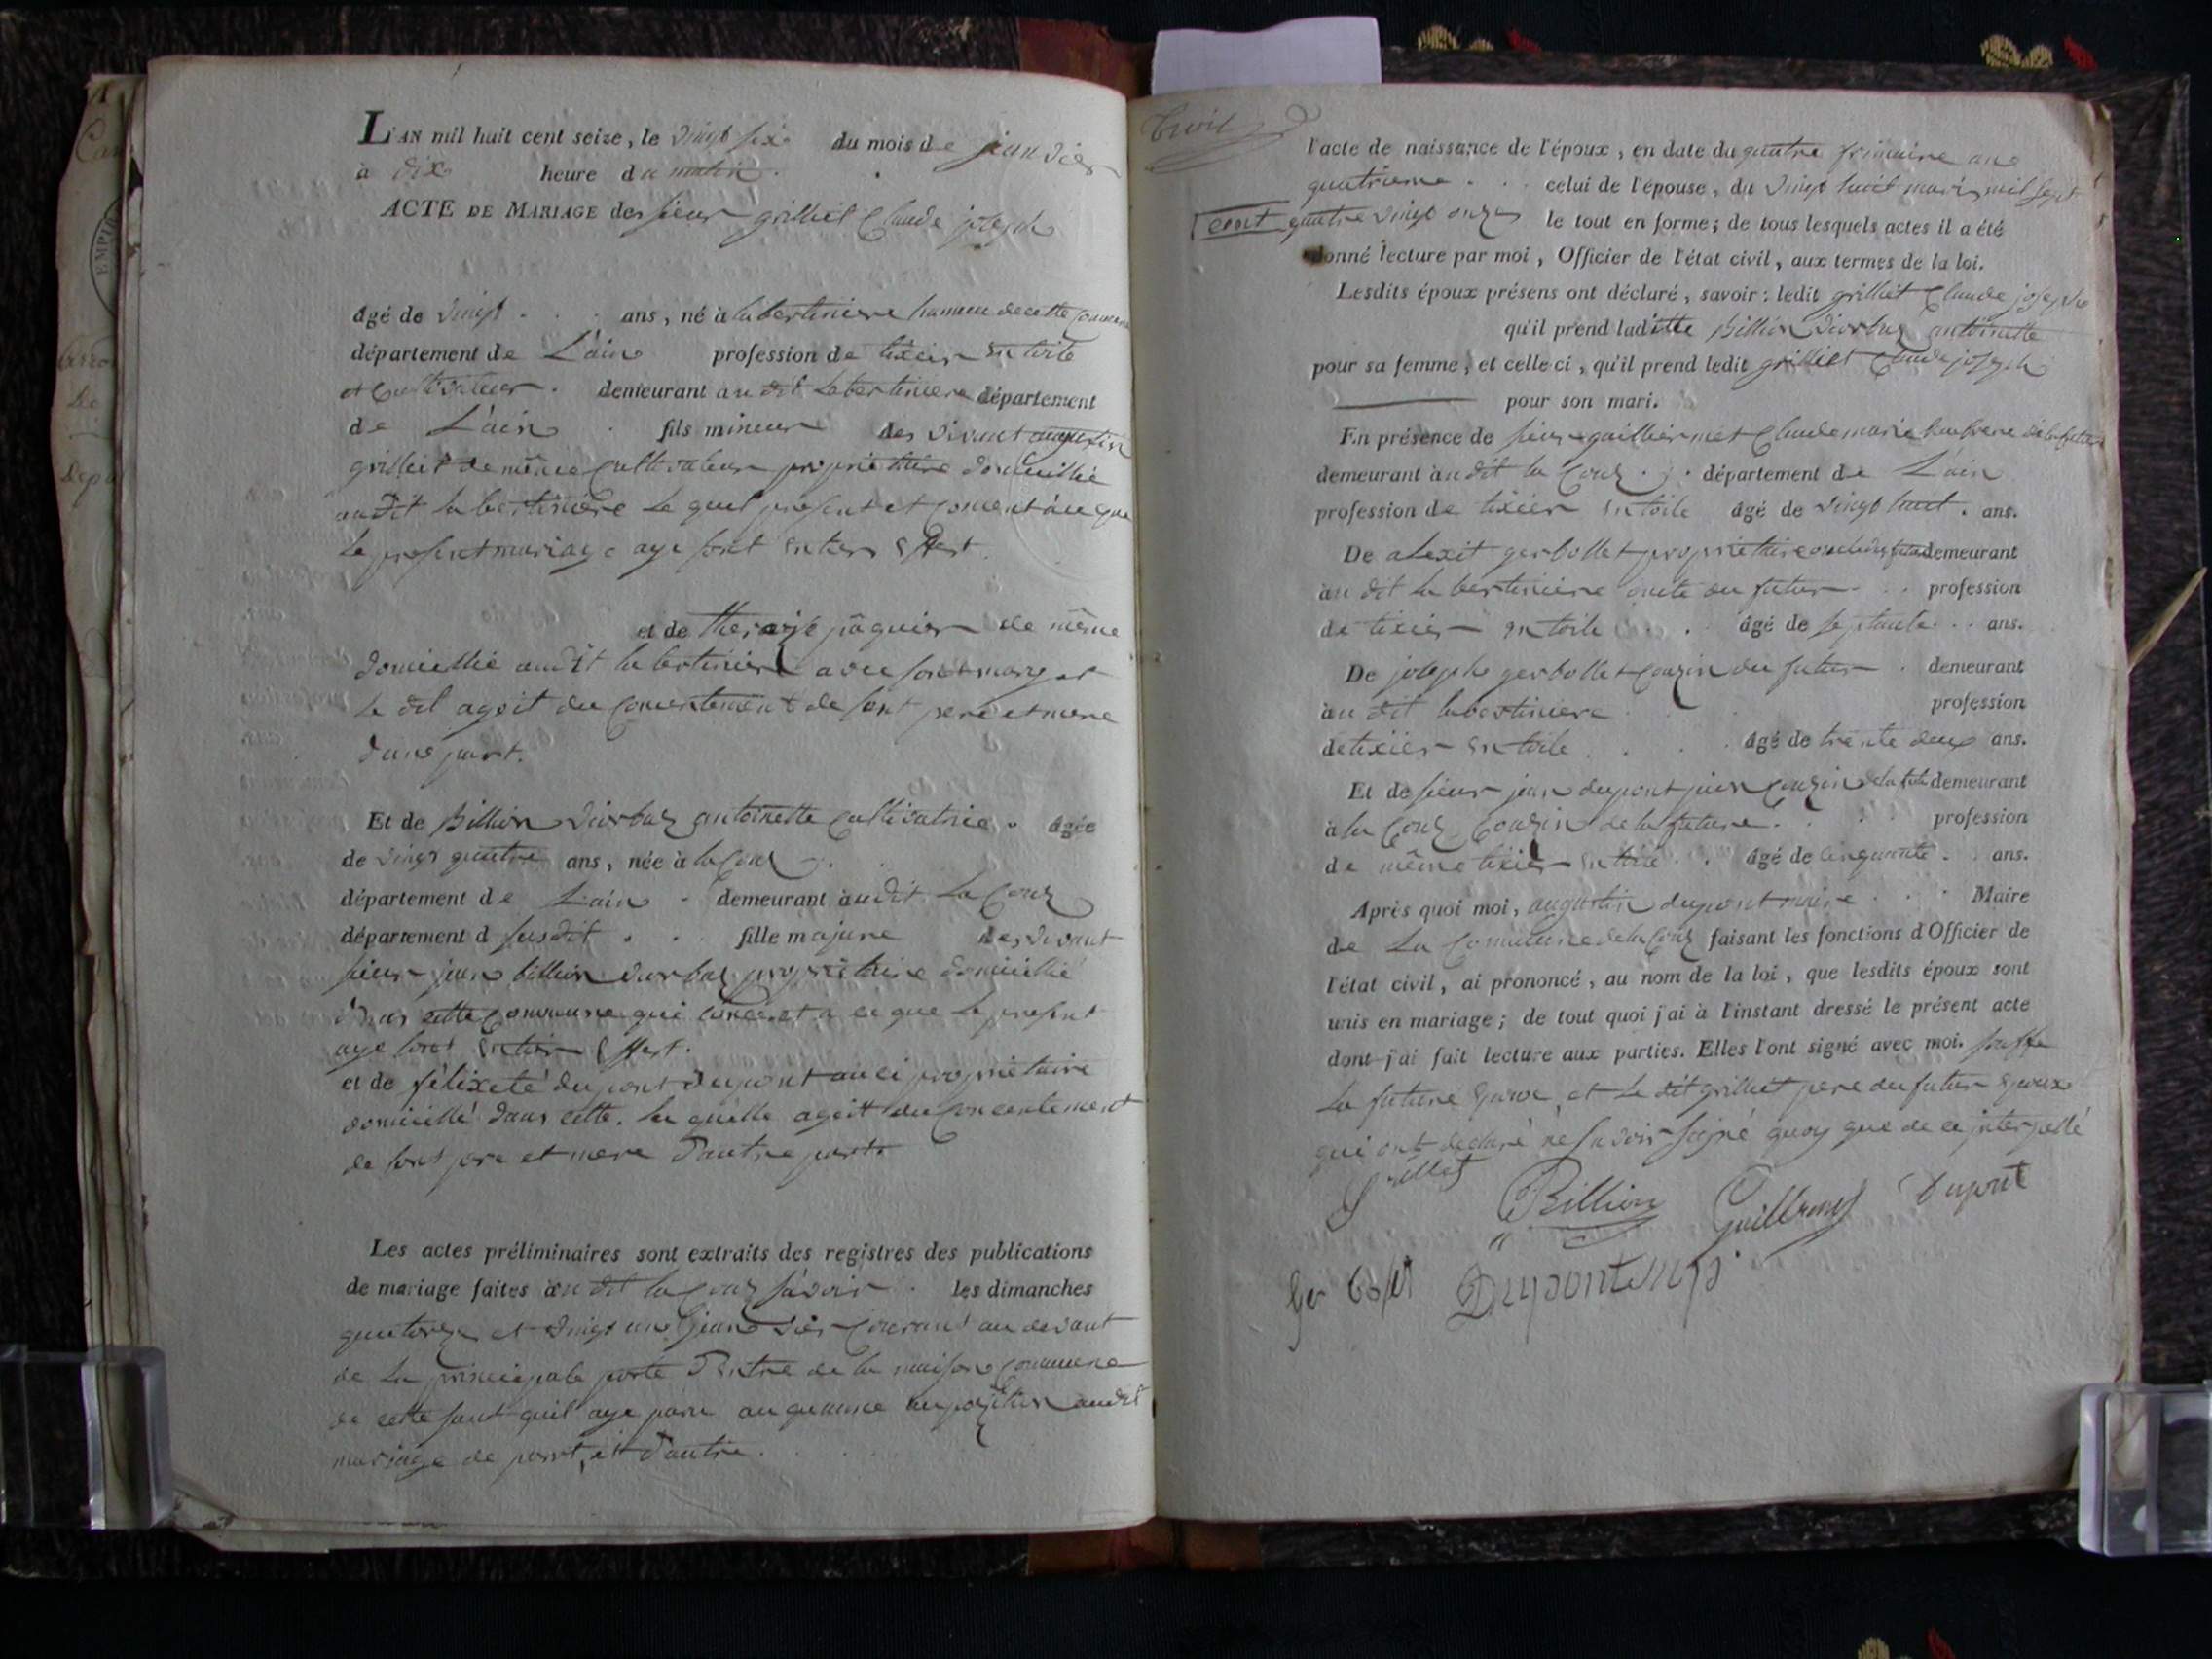 L'AN mil huit cent seize, le vingt six du mois de jeanvier
à dix heure du matin.
ACTE DE MARIAGE des sieur grilliet Claude joseph
âgé de vingt ans, né à labertiniere hameau de cette Commune
département de L'ain profession de tixier en toile
et Cultivateur. demeurant au dit Labertiniere département
de L'ain fils mineur des vivant augustin
grilliet de même cultivateur proprietaire domicillié
audit la bertiniere le quel present et consent à ce que
le present mariage aye sont entier Effest.
et de theresse pâquier de même
domicillié audit la bertiniere avec sont mary et
le dit agoit du consentement de sont pere et mere
d'une part.
Et de Billion diorbaz antoinette Cultivatrice. âgée
de vingt quatre ans, née à la Couz
département de L'ain demeurant audit La Couz
département d susdit fille majure des vivant
sieur jean billion diorbaz propriétaire domicillié
dans cette commune qui consent a ce que le present
aye sont entier Effest.
et de félixeté dupont dupont auci propriétaire
domicillié dans cette. la quelle agoit du Concentement
de sont pere et mere d'autre part
Les actes préliminaires sont extraits des registres des publications
de mariage faites au dit la Couz sávoir les dimanches
quatorze et vingt un jeanvier Courant au devant
de la principale porte d'entre de la maison commune
de cette sant quil aye paru auqueunne aupozition audit
mariage de part, et d'autre.
l'acte de naissance de l'époux, en date du quatre frimaire an
quatrieme celui de l'épouse, du vingt huit mars mil sept
cent quatre vingt onze le tout en forme; de tous lesquels actes il a été
donné lecture par moi, Officier de l'état civil, aux termes de la loi.
Lesdits époux présens ont déclaré, savoir: ledit grilliet Claude joseph
qu'il prend laditte Billion diorbaz antoinette
pour sa femme, et celle-ci, qu'il prend ledit grilliet Claude joseph
pour son mari.
En présence de sieur guilliermet Claude marie
demeurant au dit la Couz département de L'ain
profession de tixier en toile âgé de vingt huit. ans.
De alexit gerbollet propriétaire demeurant
au dit la bertiniere du futur profession
de tixier en toile âgé de septante ans.
De joseph gerbollet Couzin du futur demeurant
au dit labertiniere profession
de tixier en toile âgé de trente deux ans.
Et de sieur jean dupont Couzin de la future demeurant
à la Couz Couzin de la future. profession
de même tixier en toile âgé de cinquante. ans.
Après quoi moi, augustin dupont maire Maire
de La Commune de la Couz faisant les fonctions d'Officier de
l'état civil, ai prononcé, au nom de la loi, que lesdits époux sont
unis en mariage; de tout quoi j'ai à l'instant dressé le présent acte
dont j'ai fait lecture aux parties. Elles l'ont signé avec moi. sauffe
La future Epouse, et Le dit grilliet pere du futur Epoux
qui ont déclaré ne savoir signé quoy que de ce interpellé
Grillet
Billion Guillermet Dupont
Ger bolet Dupont